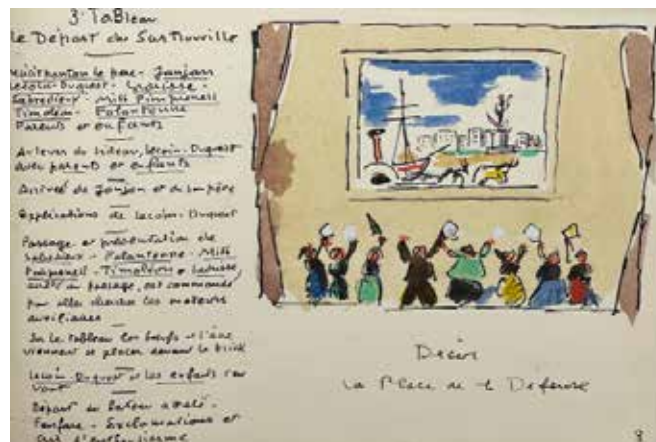 3. Tableau
le Départ du Sartrouville
le père - Janjan
Lecoin-Duquest -
Sabredieux - Miss Pimprenell
Timoléon - Falantenne
Parents et enfants
Au lever du rideau, Lecoin-Duquest
avec parents et enfants
Arrivée de Janjan et de son père
Explications de Lecoin-Duquest
Passage et présentation de
Sabredieux - Falantenne - Miss
Pimprenell - Timoléon
passage, est commandé
pour aller chercher les moteurs
auxiliaires
Sur le tableau les bœufs et l'âne
viennent se placer devant le brick
Lecoin-Duquest et les enfants s'en
vont
Départ du bateau attelé -
Fanfare - Exclamations et
cris d'enthousiasme
Décor
La Place de la Défense
8